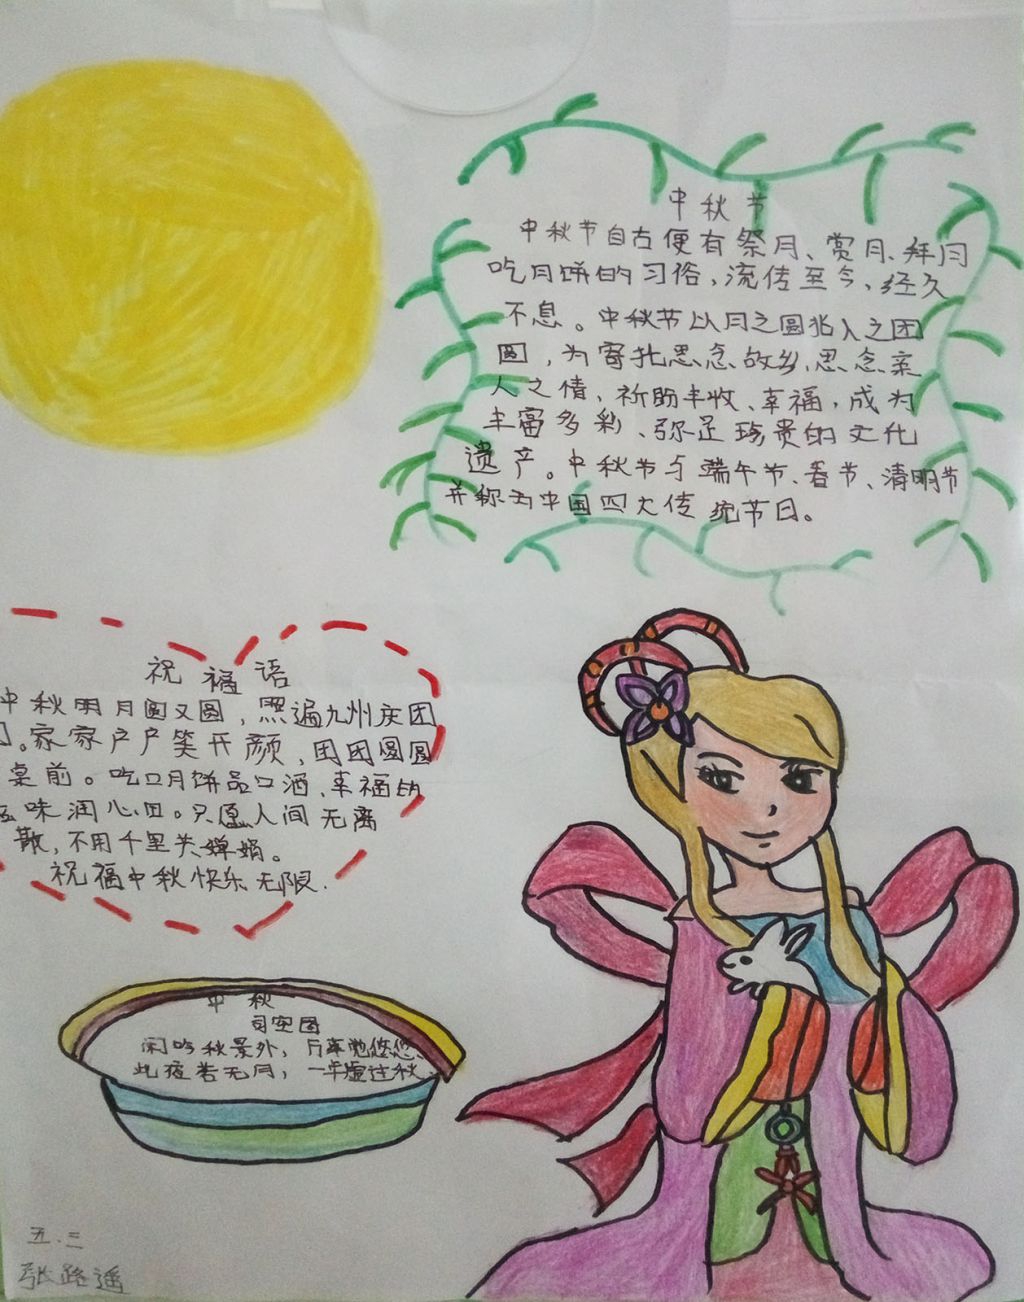 中秋节
中秋节自古便有祭月、赏月、拜月
吃月饼的习俗,流传至今,经久
不息。中秋节以月之圆兆人之团
圆,为寄托思念故乡,思念亲
人之情,祈盼丰收、幸福,成为
丰富多彩、弥足珍贵的文化
遗产。中秋节与端午节、春节、清明节
并称为中国四大传统节日。
祝福语
中秋明月圆又圆,照遍九州庆团
。家家户户笑开颜,团团圆圆
桌前。吃口月饼品口酒,幸福的
味润心田。只愿人间无离
散,不用千里共婵娟。
祝福中秋快乐无限.
中秋
司空图
闲吟秋景外,万事觉悠悠、
此夜若无月,一年虚过秋
五.三
张路遥